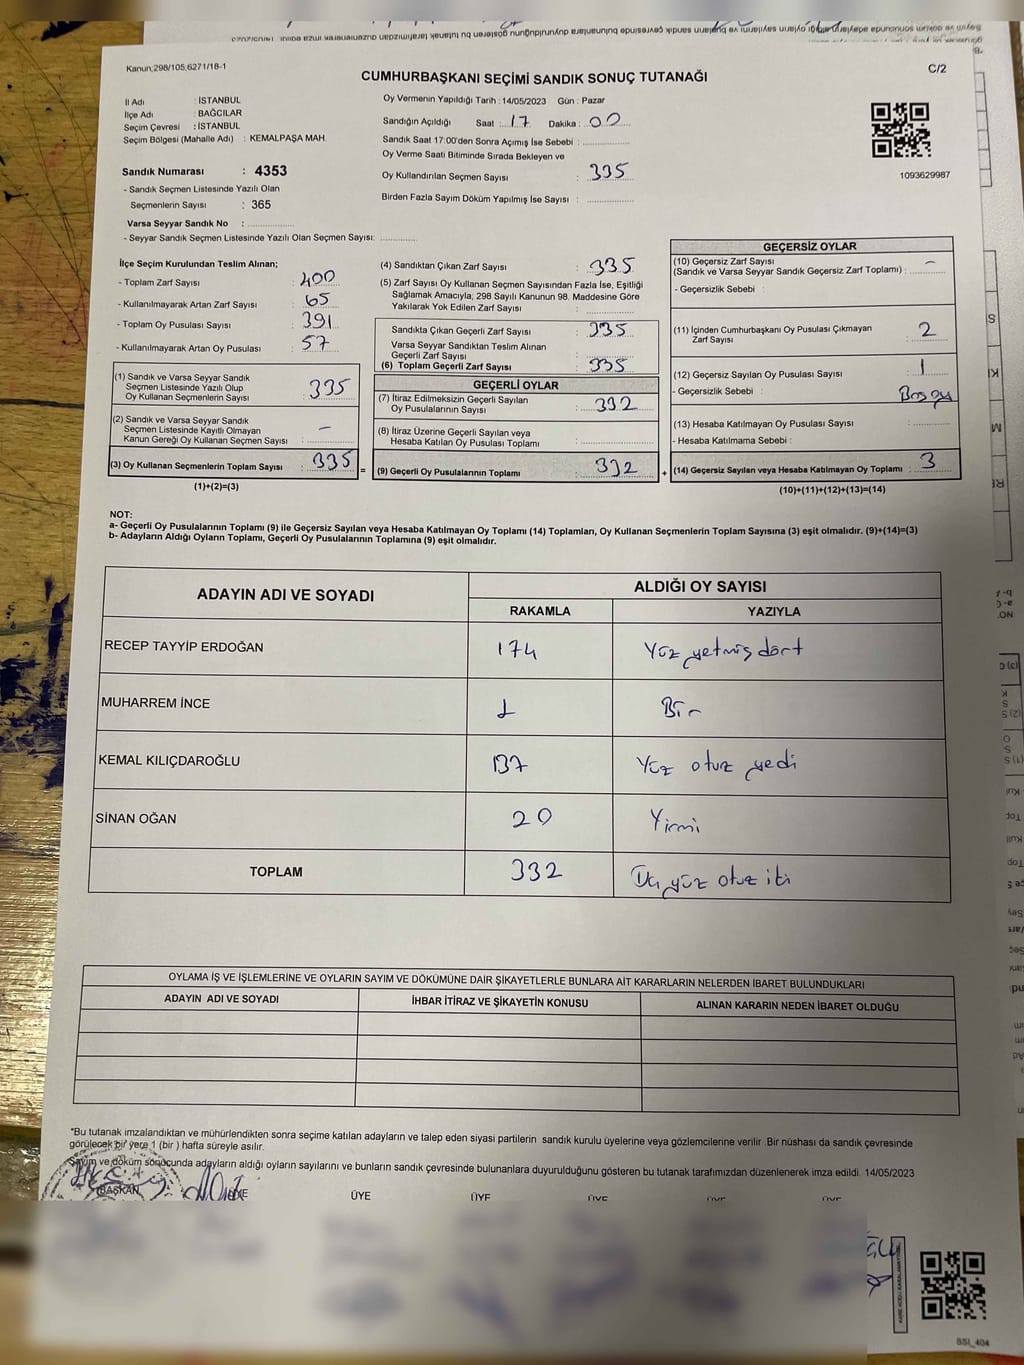 Kanun:298/105,6271/18-1
CUMHURBAŞKANI SEÇİMİ SANDIK SONUÇ TUTANAĞI
C/2
İl Adı : İSTANBUL
İlçe Adı : BAĞCILAR
Seçim Çevresi : İSTANBUL
Seçim Bölgesi (Mahalle Adı) : KEMALPAŞA MAH.
Sandık Numarası : 4353
- Sandık Seçmen Listesinde Yazılı Olan
Seçmenlerin Sayısı : 365
Varsa Seyyar Sandık No :
- Seyyar Sandık Seçmen Listesinde Yazılı Olan Seçmen Sayısı:
Oy Vermenin Yapıldığı Tarih : 14/05/2023 Gün : Pazar
Sandığın Açıldığı Saat : 17 Dakika : 00
Sandık Saat 17:00'den Sonra Açımış İse Sebebi :
Oy Verme Saati Bitiminde Sırada Bekleyen ve
Oy Kullandırılan Seçmen Sayısı : 335
Birden Fazla Sayım Döküm Yapılmış İse Sayısı :
1093629987
İlçe Seçim Kurulundan Teslim Alınan;
- Toplam Zarf Sayısı : 400
- Kullanılmayarak Artan Zarf Sayısı : 65
- Toplam Oy Pusulası Sayısı : 391
- Kullanılmayarak Artan Oy Pusulası : 57
(1) Sandık ve Varsa Seyyar Sandık
Seçmen Listesinde Yazılı Olup
Oy Kullanan Seçmenlerin Sayısı : 335
(2) Sandık ve Varsa Seyyar Sandık
Seçmen Listesinde Kayıtlı Olmayan
Kanun Gereği Oy Kullanan Seçmen Sayısı : -
(3) Oy Kullanan Seçmenlerin Toplam Sayısı : 335 =
(1)+(2)=(3)
(4) Sandıktan Çıkan Zarf Sayısı : 335
(5) Zarf Sayısı Oy Kullanan Seçmen Sayısından Fazla İse, Eşitliği
Sağlamak Amacıyla; 298 Sayılı Kanunun 98. Maddesine Göre
Yakılarak Yok Edilen Zarf Sayısı :
Sandıkta Çıkan Geçerli Zarf Sayısı : 335
Varsa Seyyar Sandıktan Teslim Alınan
Geçerli Zarf Sayısı :
(6) Toplam Geçerli Zarf Sayısı : 335
GEÇERLİ OYLAR
(7) İtiraz Edilmeksizin Geçerli Sayılan
Oy Pusulalarının Sayısı : 332
(8) İtiraz Üzerine Geçerli Sayılan veya
Hesaba Katılan Oy Pusulası Toplamı :
(9) Geçerli Oy Pusulalarının Toplamı : 332 +
GEÇERSİZ OYLAR
(10) Geçersiz Zarf Sayısı
(Sandık ve Varsa Seyyar Sandık Geçersiz Zarf Toplamı) : -
- Geçersizlik Sebebi :
(11) İçinden Cumhurbaşkanı Oy Pusulası Çıkmayan
Zarf Sayısı : 2
(12) Geçersiz Sayılan Oy Pusulası Sayısı : 1
- Geçersizlik Sebebi : Boş oy
(13) Hesaba Katılmayan Oy Pusulası Sayısı :
- Hesaba Katılmama Sebebi :
(14) Geçersiz Sayılan veya Hesaba Katılmayan Oy Toplamı : 3
(10)+(11)+(12)+(13)=(14)
NOT:
a- Geçerli Oy Pusulalarının Toplamı (9) ile Geçersiz Sayılan veya Hesaba Katılmayan Oy Toplamı (14) Toplamları, Oy Kullanan Seçmenlerin Toplam Sayısına (3) eşit olmalıdır. (9)+(14)=(3)
b- Adayların Aldığı Oyların Toplamı, Geçerli Oy Pusulalarının Toplamına (9) eşit olmalıdır.
ADAYIN ADI VE SOYADI
ALDIĞI OY SAYISI
RAKAMLA YAZIYLA
RECEP TAYYİP ERDOĞAN 174 Yüz yetmiş dört
MUHARREM İNCE 1 Bir
KEMAL KILIÇDAROĞLU 137 Yüz otuz yedi
SİNAN OĞAN 20 Yirmi
TOPLAM 332 Üç yüz otuz iki
OYLAMA İŞ VE İŞLEMLERİNE VE OYLARIN SAYIM VE DÖKÜMÜNE DAİR ŞİKAYETLERLE BUNLARA AİT KARARLARIN NELERDEN İBARET BULUNDUKLARI
ADAYIN ADI VE SOYADI İHBAR İTİRAZ VE ŞİKAYETİN KONUSU ALINAN KARARIN NEDEN İBARET OLDUĞU
*Bu tutanak imzalandıktan ve mühürlendikten sonra seçime katılan adayların ve talep eden siyasi partilerin sandık kurulu üyelerine veya gözlemcilerine verilir. Bir nüshası da sandık çevresinde
görülecek bir yere 1 (bir ) hafta süreyle asılır.
Sayım ve döküm sonucunda adayların aldığı oyların sayılarını ve bunların sandık çevresinde bulunanlara duyurulduğunu gösteren bu tutanak tarafımızdan düzenlenerek imza edildi. 14/05/2023
BAŞKAN ÜYE ÜYE ÜYE ÜYE ÜYE ÜYE